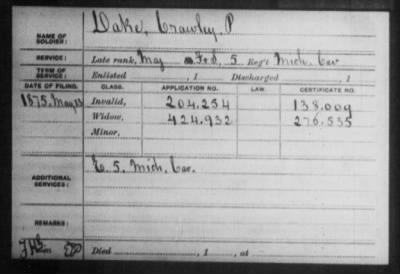 NAME OF SOLDIER: Dake, Crawley, P
SERVICE: Late rank, Maj F&S, 5 Reg't Mich. Cav
TERM OF SERVICE: Enlisted , 1 Discharged , 1
DATE OF FILING. CLASS. APPLICATION NO. LAW. CERTIFICATE NO.
1875, May 13 Invalid, 204.254 138.009
Widow, 424.932 276.535
Minor,
ADDITIONAL SERVICES: E. 5. Mich. Cav.
REMARKS:
Died , 1 , at